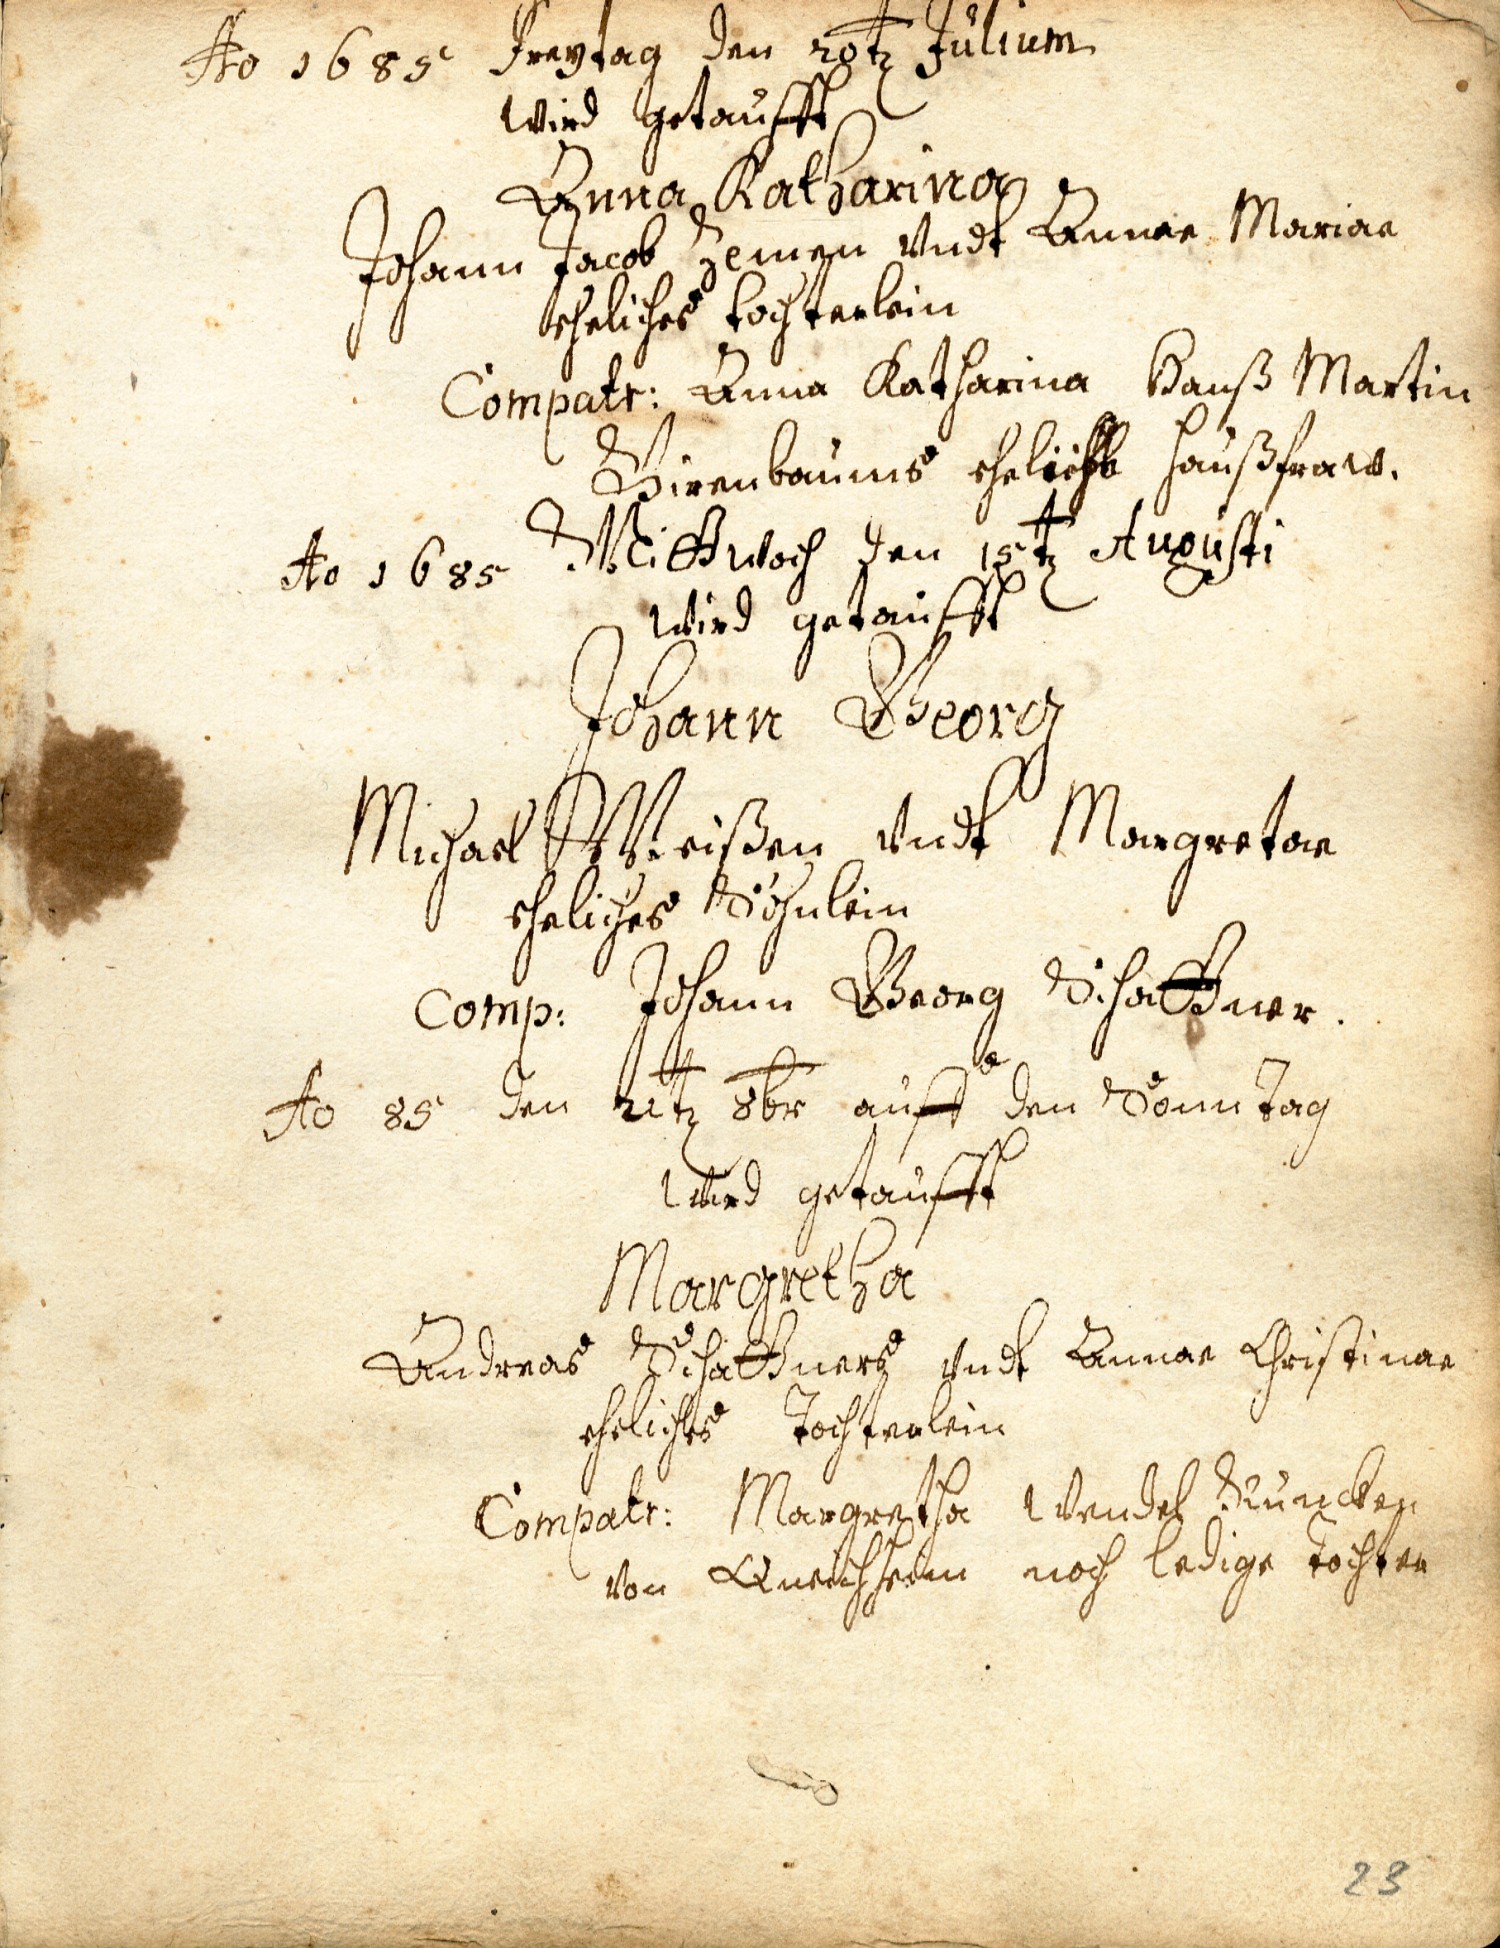 Ao 1685 Freytag den 20tz Julium
wird getaufft
Anna Katharina
Johann Jacob Hemen Undt Annae Mariae
eheliches tochterlein
Compatr: Anna Katharina Hanß Martin
Birenbaums eheliche haußfraw.
Ao 1685 Mittwoch den 15tz Augusti
wird getaufft
Johann Georg
Michael Weißen undt Margretae
eheliches Söhnlein
Comp: Johann Georg Schaffner.
Ao 85 den 21tz 8br auff den Sonntag
wird getaufft
Margretha
Andreas Schaffners undt Annae Christinae
eheliches Tochterlein
Compatr: Margretha Wendel Runcken
von noch ledige Tochter
23